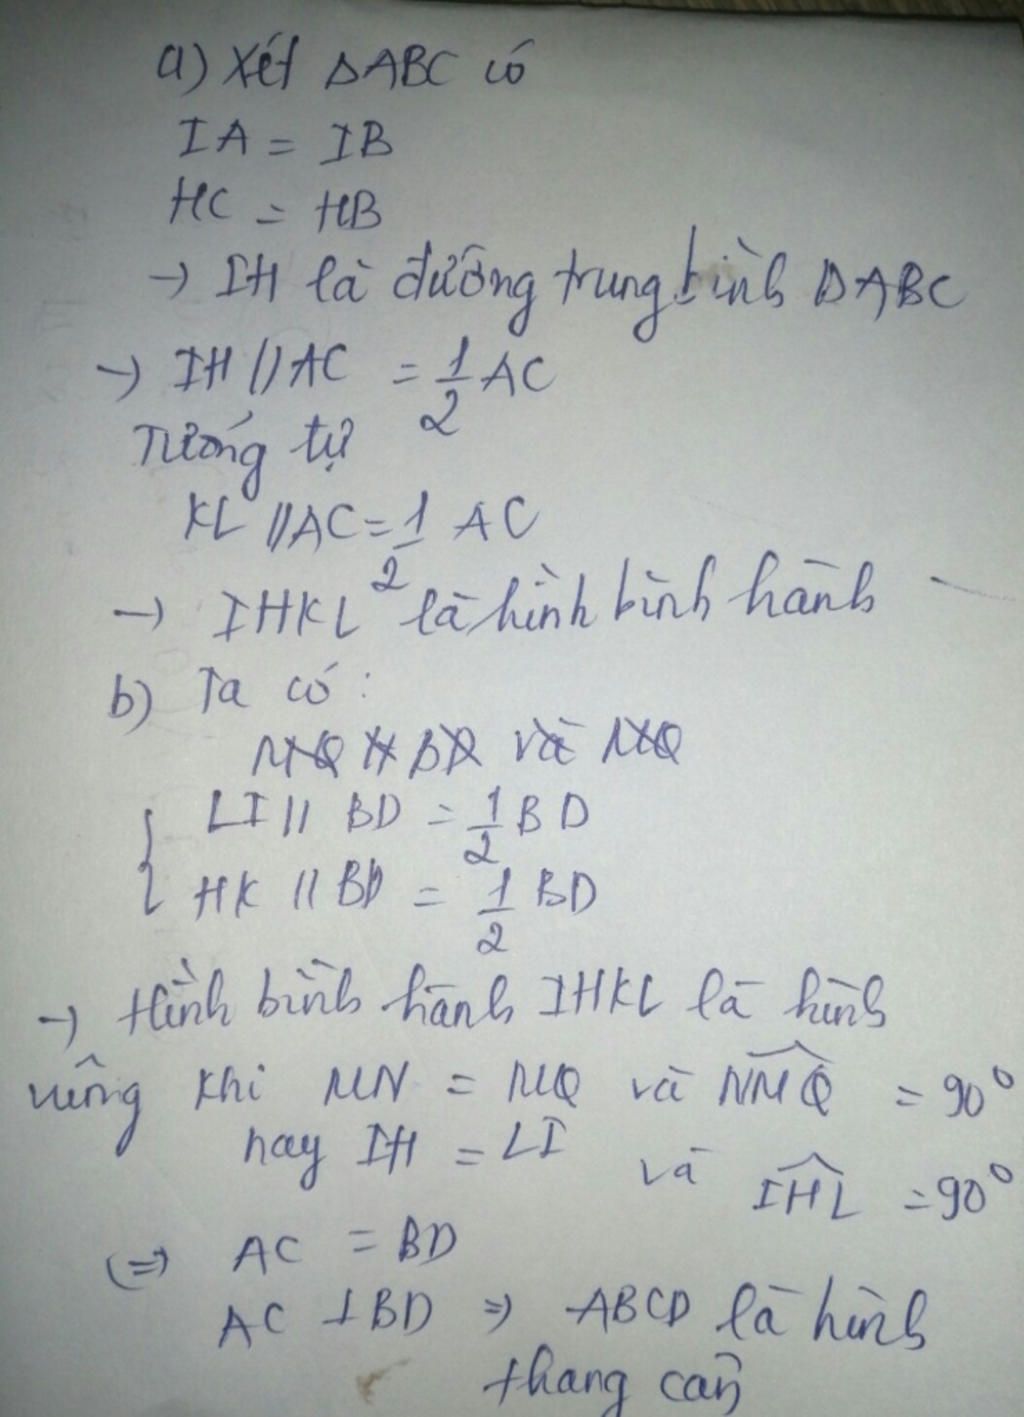 a) Xét ΔABC có
IA = IB
HC = HB
→ IH là đường trung bình ΔABC
→ IH // AC = 1/2 AC
Tương tự
KL // AC = 1/2 AC
→ IHKL là hình bình hành
b) Ta có:
MQ // BD và MQ
{ LI // BD = 1/2 BD
HK // BD = 1/2 BD
→ Hình bình hành IHKL là hình
vuông khi MN = MQ và NMQ = 90°
hay IH = LI và IHL = 90°
(=> AC = BD
AC ⊥ BD => ABCD là hình
thang cân